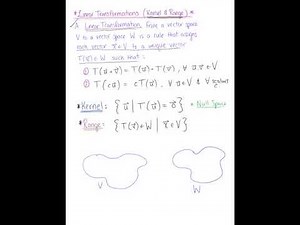 * Linear Transformations (Kernel & Range) *
A Linear Transformation from a vector space
V to a vector space W is a rule that assigns
each vector u⃗ ∈ V to a unique vector
T(u⃗) ∈ W such that:
① T(u⃗ + v⃗) = T(u⃗) + T(v⃗), ∀ u⃗, v⃗ ∈ V
② T(cu⃗) = cT(u⃗), ∀ u⃗ ∈ V & ∀
* Kernel: { u⃗ | T(u⃗) = 0⃗ } * Null Space
* Range: { T(u⃗) ∈ W | u⃗ ∈ V }
V W